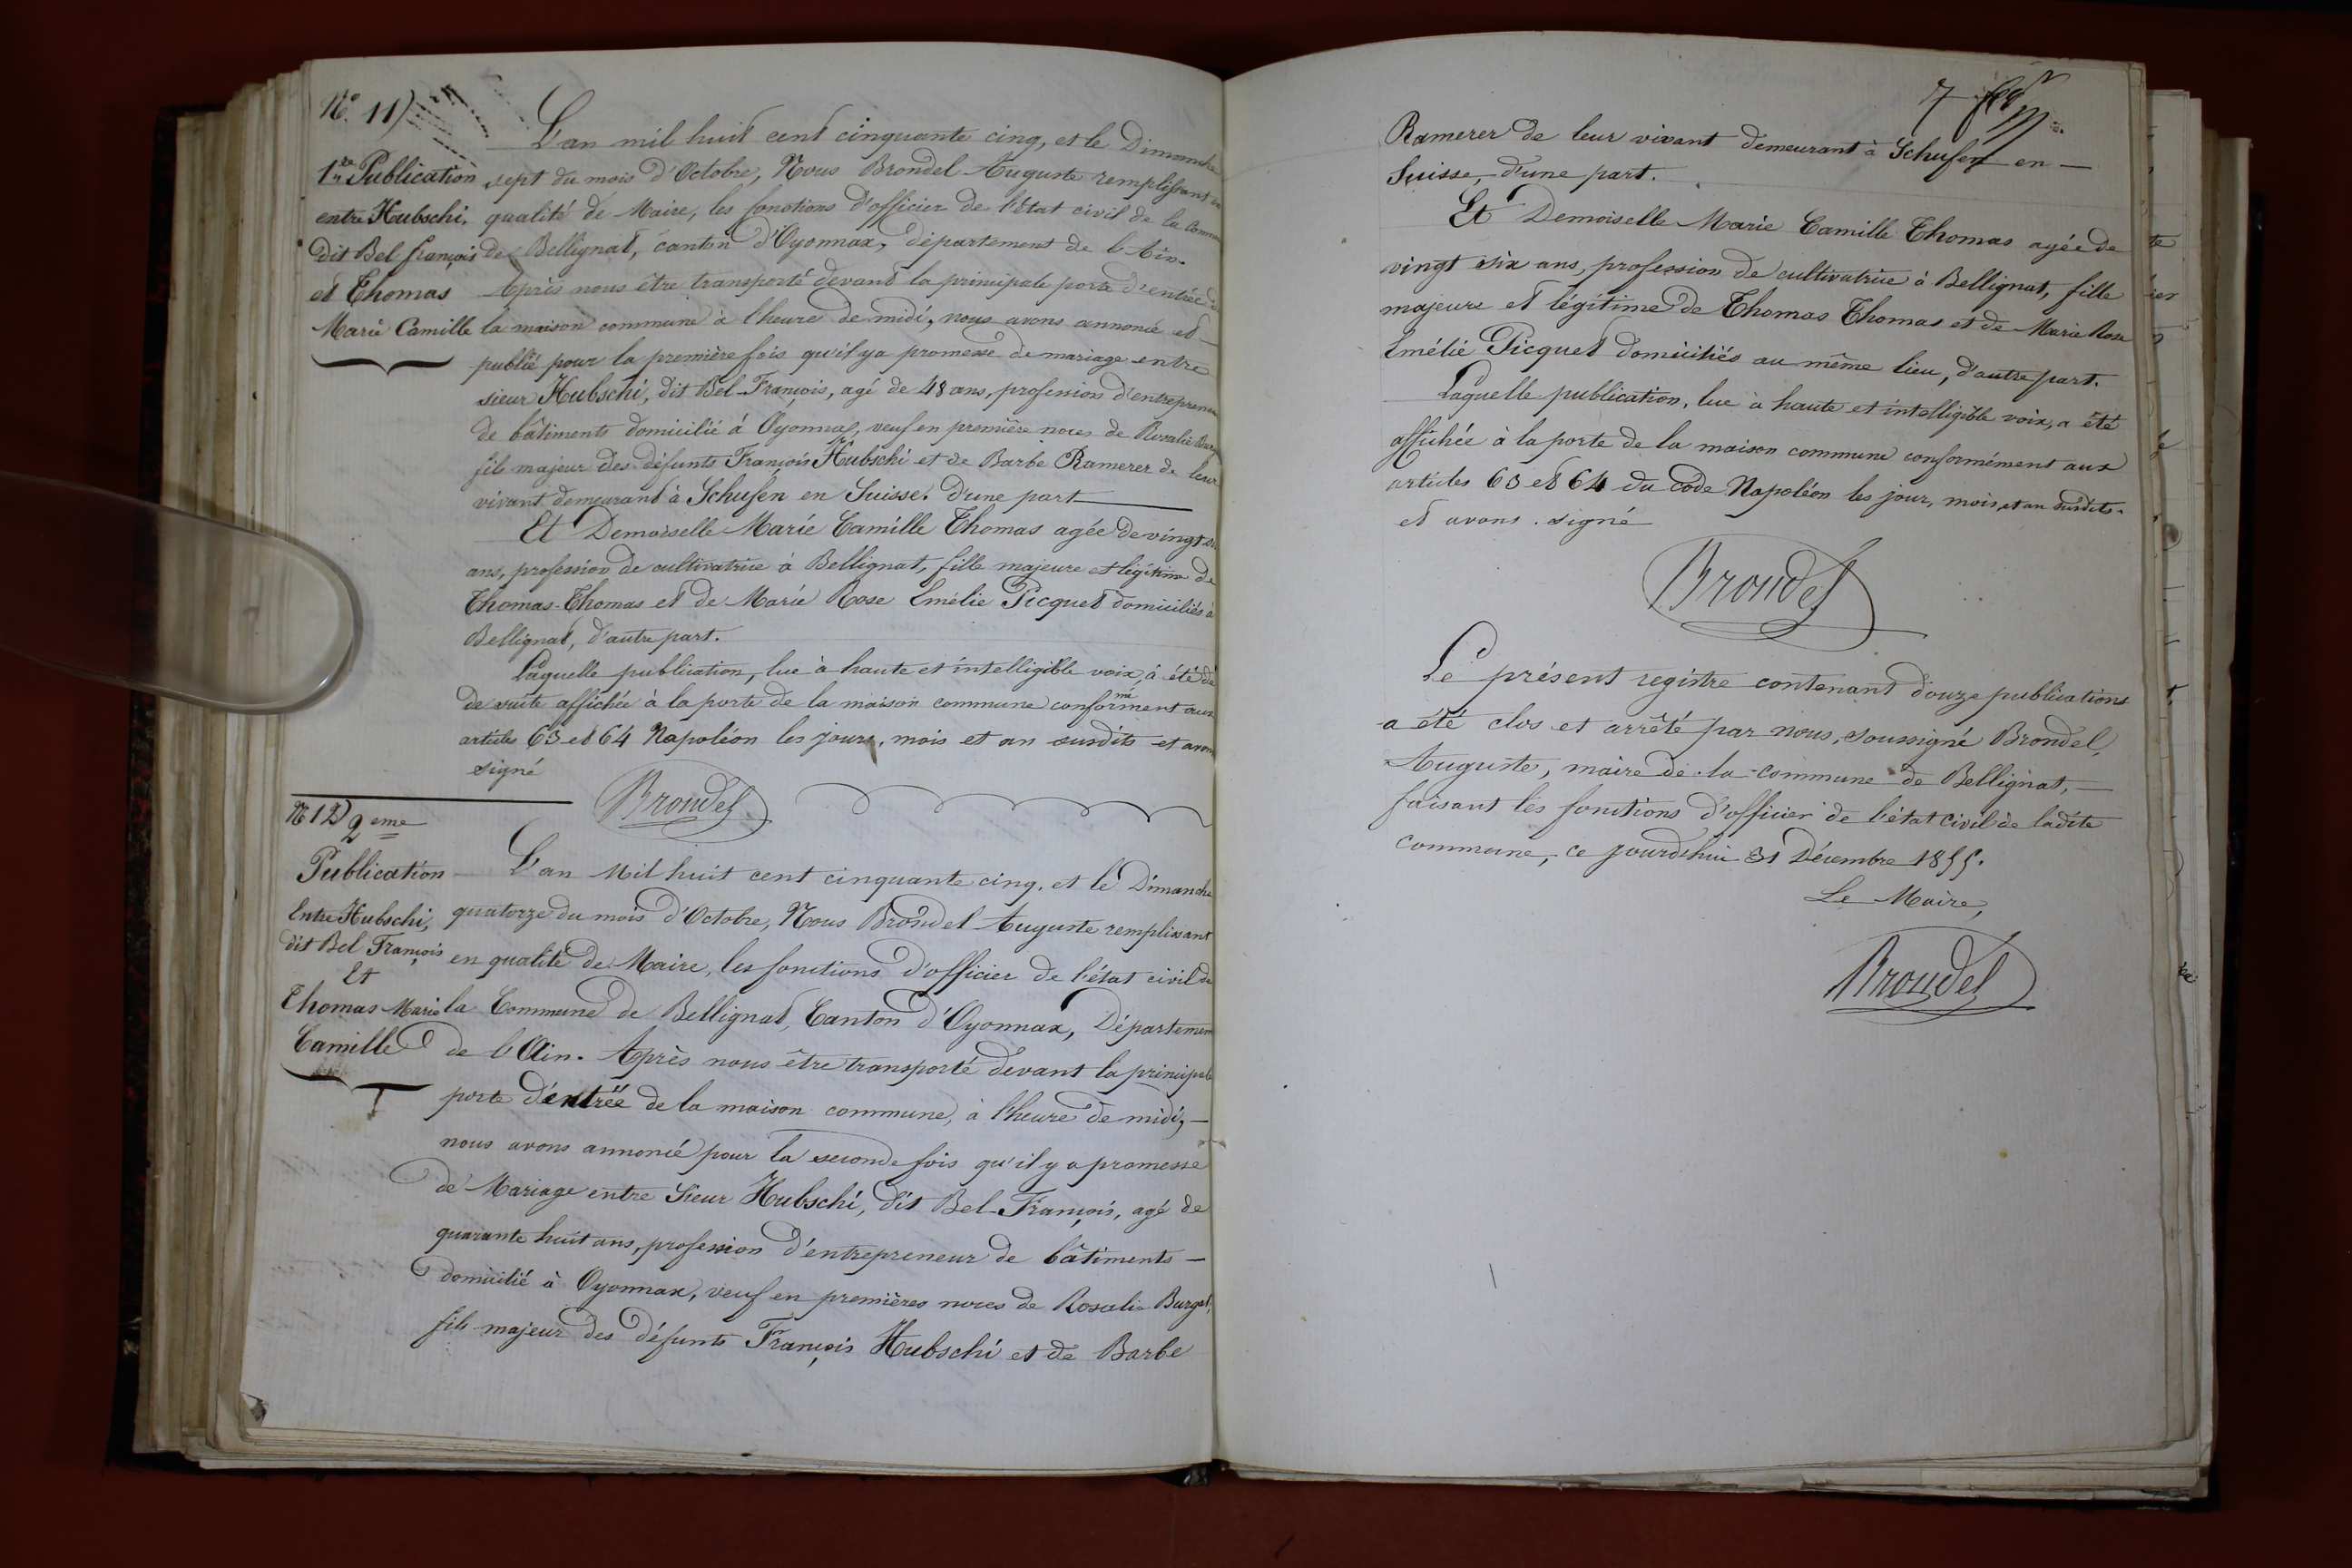 N° 11)
1re Publication
entre Hubschi,
dit Bel françois
et Thomas
Marie Camille
L'an mil huit cent cinquante cinq, et le Dimanche
sept du mois d'Octobre, Nous Brondel Auguste remplissant en
qualité de Maire, les fonctions d'officier de l'état civil de la Commune
de Bellignat, canton d'Oyonnax, département de l'Ain.
Après nous être transporté devant la principale porte d'entrée de
la maison commune à l'heure de midi, nous avons annoncé et
publié pour la première fois qu'il y a promesse de mariage entre
sieur Hubschi, dit Bel-François, agé de 48 ans, profession d'entrepreneur
de bâtiments domicilié à Oyonnax, veuf en première noces de Rosalie
fils majeur des défunts François Hubschi et de Barbe Ramerer de leur
vivant demeurant à Schufen en Suisse. D'une part
Et Demoiselle Marie Camille Thomas agée de vingt six
ans, profession de cultivatrice à Bellignat, fille majeure et légitime de
Thomas-Thomas et de Marie Rose Emélie Picquet domiciliés à
Bellignat, d'autre part.
Laquelle publication, lue à haute et intelligible voix, à été de
de suite affichée à la porte de la maison commune conformément aux
articles 63 et 64 Napoléon les jours, mois et an susdits et avons
signé
Brondel
N° 12) 2eme
Publication
Entre Hubschi,
dit Bel François
Et
Thomas Marie
Camille
L'an Mil huit cent cinquante cinq, et le Dimanche
quatorze du mois d'Octobre, Nous Brondel Auguste remplissant
en qualité de Maire, les fonctions d'officier de l'état civil de
la Commune de Bellignat, Canton d'Oyonnax, Département
de l'Ain. Après nous être transporté devant la principale
porte d'entrée de la maison commune, à l'heure de midi,
nous avons annoncé pour la seconde fois qu'il y a promesse
de Mariage entre Sieur Hubschi, dit Bel-François, agé de
quarante huit ans, profession d'entrepreneur de bâtiments
domicilié à Oyonnax, veuf en premières noces de Rosalie Burgat,
fils majeur des défunts François Hubschi et de Barbe
7
Ramerer de leur vivant demeurant à Schufen en
Suisse, d'une part.
Et Demoiselle Marie Camille Thomas agée de
vingt six ans, profession de cultivatrice à Bellignat, fille
majeure et légitime de Thomas Thomas et de Marie Rose
Emélie Picquet domiciliés au même lieu, d'autre part.
Laquelle publication, lue à haute et intelligible voix, a été
affichée à la porte de la maison commune conformément aux
articles 63 et 64 du code Napoléon les jour, mois, et an susdits.
et avons signé
Brondel
Le présent registre contenant douze publications
a été clos et arrêté par nous, soussigné Brondel,
Auguste, maire de la commune de Bellignat,
faisant les fonctions d'officier de l'état civil de ladite
commune, ce jourd'hui 31 Décembre 1855.
Le Maire,
Brondel